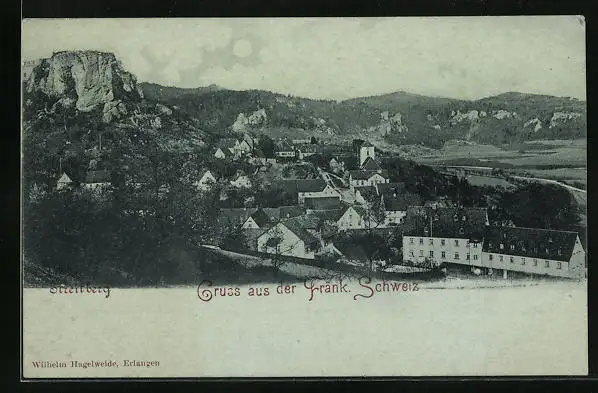 Streitberg
Gruss aus der Fränk. Schweiz
Wilhelm Hagelweide, Erlangen